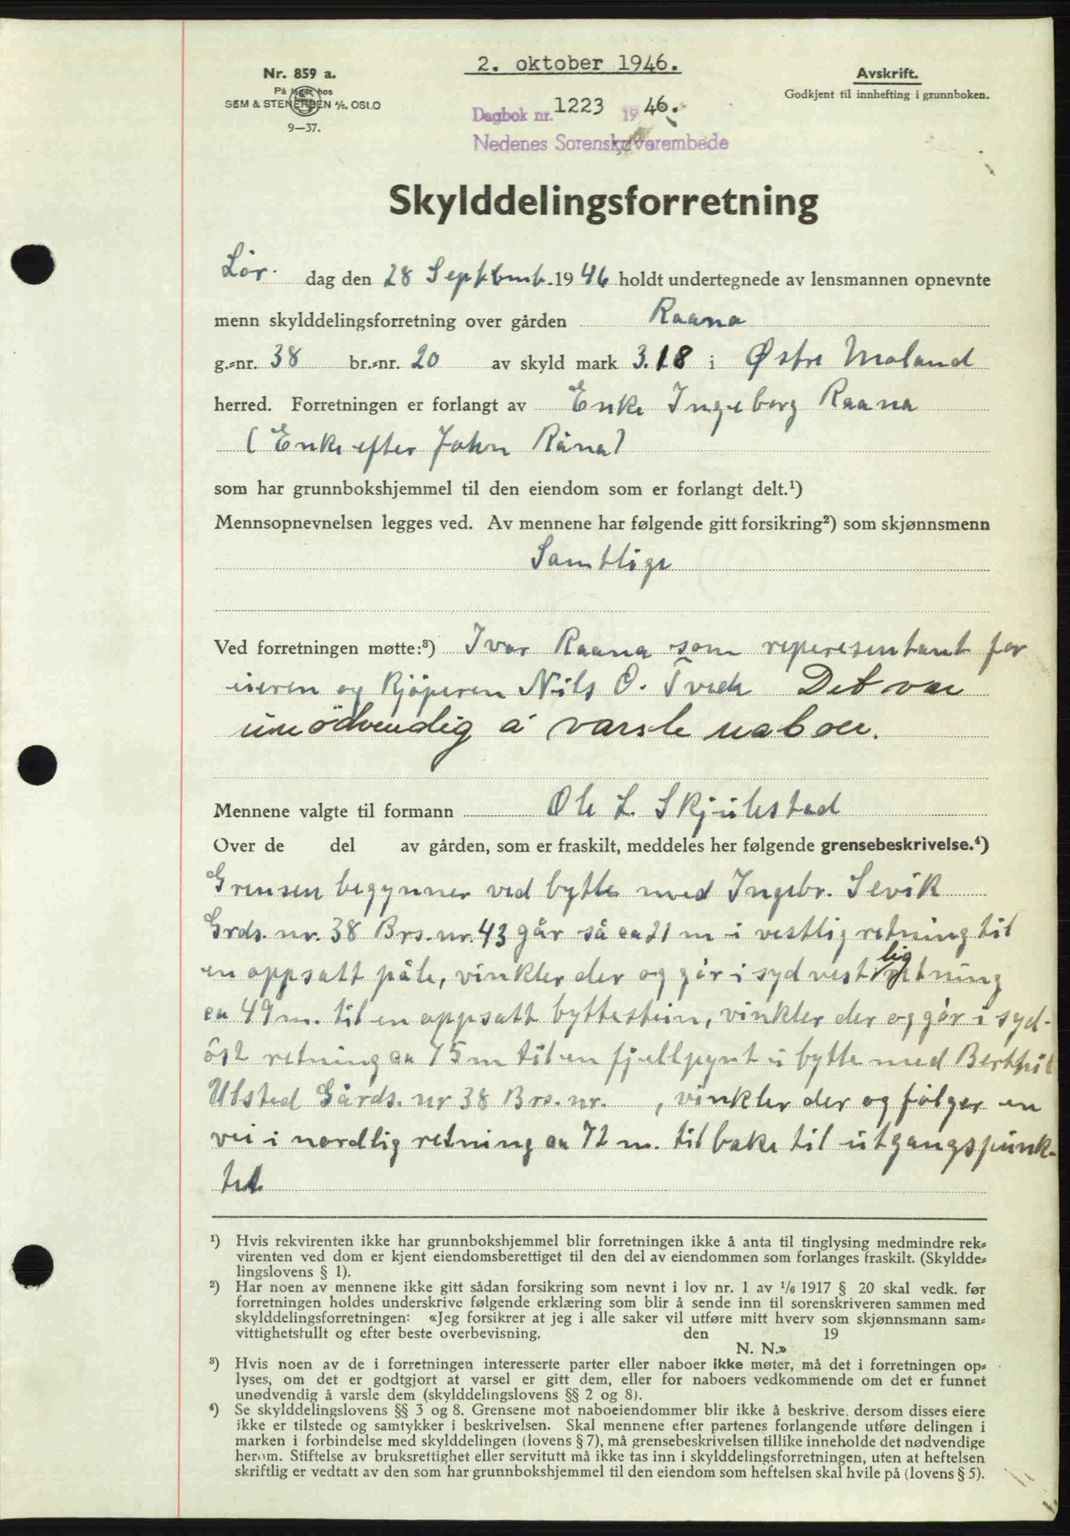 2. oktober 1946.
Nr. 859 a.
På lager hos
SEM & STENERSEN A/S. OSLO
9—37.
Avskrift.
Godkjent til innhefting i grunnboken.
Dagbok nr. 1223 19 46.
Nedenes Sorenskriverembede
Skylddelingsforretning
Lör. dag den 28 Septbmb. 1946 holdt undertegnede av lensmannen opnevnte
menn skylddelingsforretning over gården Raana
g.-nr. 38 br.-nr. 20 av skyld mark 3.18 i Østre Moland
herred. Forretningen er forlangt av Enke Ingeborg Raana
(Enke efter John Råna)
som har grunnbokshjemmel til den eiendom som er forlangt delt.¹)
Mennsopnevnelsen legges ved. Av mennene har følgende gitt forsikring²) som skjønnsmenn
Samtlige
Ved forretningen møtte:³) Ivar Raana som representant for
eieren og Kjöperen Nils O. Tvede Det var
unödvendig å varsle naboer.
Mennene valgte til formann Ole L. Skjulestad
Over de del av gården, som er fraskilt, meddeles her følgende grensebeskrivelse.⁴)
Grensen begynner ved bytte med Ingebr. Sevik
Grds. nr. 38 Brs. nr. 43 går så ca 21 m i vestlig retning til
en oppsatt påle, vinkler der og går i sydvestlig retning
ca 49 m. til en oppsatt byttestein, vinkler der og går i syd-
öst retning ca 75 m til en fjellpynt i bytte med
Ulsted Gårds. nr 38 Brs. nr. , vinkler der og følger en
vei i nordlig retning ca 72 m. tilbake til utgangspunk-
tet
¹) Hvis rekvirenten ikke har grunnbokshjemmel blir forretningen ikke å anta til tinglysing medmindre rek-
virenten ved dom er kjent eiendomsberettiget til den del av eiendommen som forlanges fraskilt. (Skyldde-
lingslovens § 1).
²) Har noen av mennene ikke gitt sådan forsikring som nevnt i lov nr. 1 av 1/6 1917 § 20 skal vedk. før
forretningen holdes underskrive følgende erklæring som blir å sende inn til sorenskriveren sammen med
skylddelingsforretningen: «Jeg forsikrer at jeg i alle saker vil utføre mitt hverv som skjønnsmann sam-
vittighetsfullt og efter beste overbevisning. den 19
N. N.»
³) Hvis noen av de i forretningen interesserte parter eller naboer ikke møter, må det i forretningen op-
lyses, om det er godtgjort at varsel er gitt dem, eller for naboers vedkommende om det er funnet
unødvendig å varsle dem (skylddelingslovens §§ 2 og 8).
⁴) Se skylddelingslovens §§ 3 og 8. Grensene mot naboeiendommer blir ikke å beskrive, dersom disses eiere
ikke er tilstede og samtykker i beskrivelsen. Skal mennene efter partenes forlangende utføre delingen i
marken i forbindelse med skylddelingen (lovens § 7), må grensebeskrivelsen tillike inneholde det nødvendige
herom. Stiftelse av bruksrettighet eller servitutt må ikke tas inn i skylddelingsforretningen, uten at heftelsen
skriftlig er vedtatt av den som har grunnbokshjemmel til den eiendom som heftelsen skal hvile på (lovens § 5).